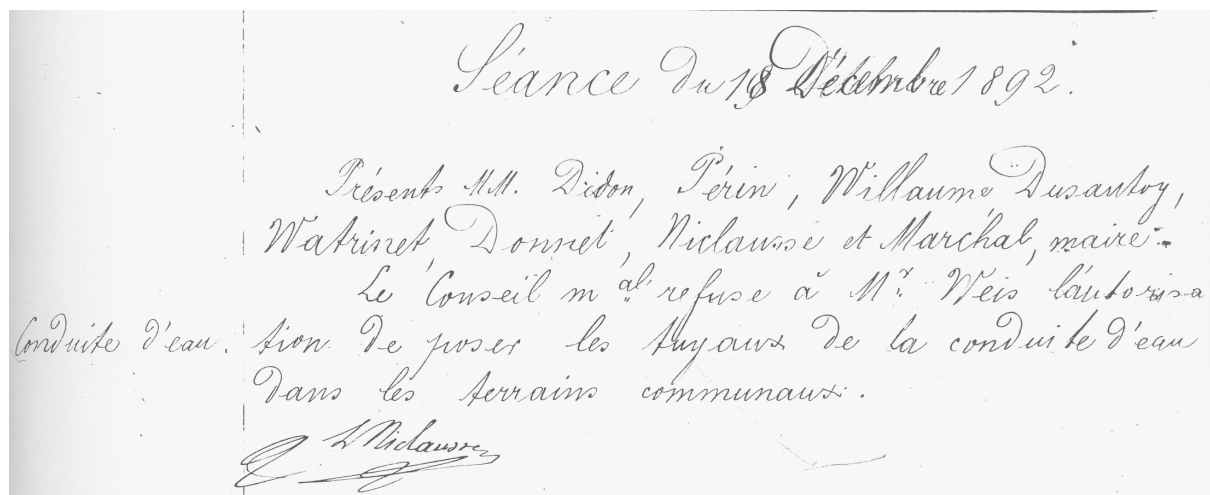 Séance du 18 Décembre 1892.
Présents MM. Didon, Périn, Willaume Dusautoy,
Watrinet, Donnet, Niclausse et Marchal, maire.
Le Conseil mal refuse à Mr. Weis l'autorisa
Conduite d'eau. tion de poser les tuyaux de la conduite d'eau
dans les terrains communaux.
L Niclausse